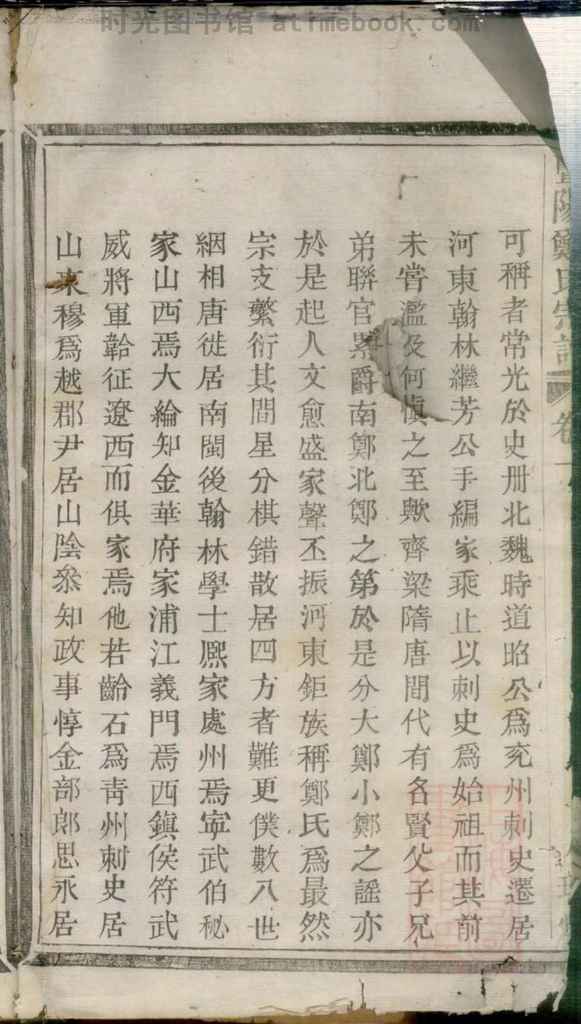 时光图书馆 atimebook.com
陽鄭氏宗譜 卷
可稱者常光於史册北魏時道昭公爲兖州刺史遷居
河東翰林繼芳公手編家乘止以刺史爲始祖而其前
未嘗濫及何慎之至歟齊梁隋唐間代有名賢父子兄
弟聯官累爵南鄭北鄭之第於是分大鄭小鄭之謡亦
於是起人文愈盛家聲丕振河東鉅族稱鄭氏爲最然
宗支繁衍其間星分棋錯散居四方者難更僕數八世
絪相唐徙居南閩後翰林學士熈家處州焉寜武伯秘
家山西焉大綸知金華府家浦江義門焉西鎮侯符武
威將軍韐征遼西而俱家焉他若齡石爲青州刺史居
山東穆爲越郡尹居山陰叅知政事惇金部郎思永居